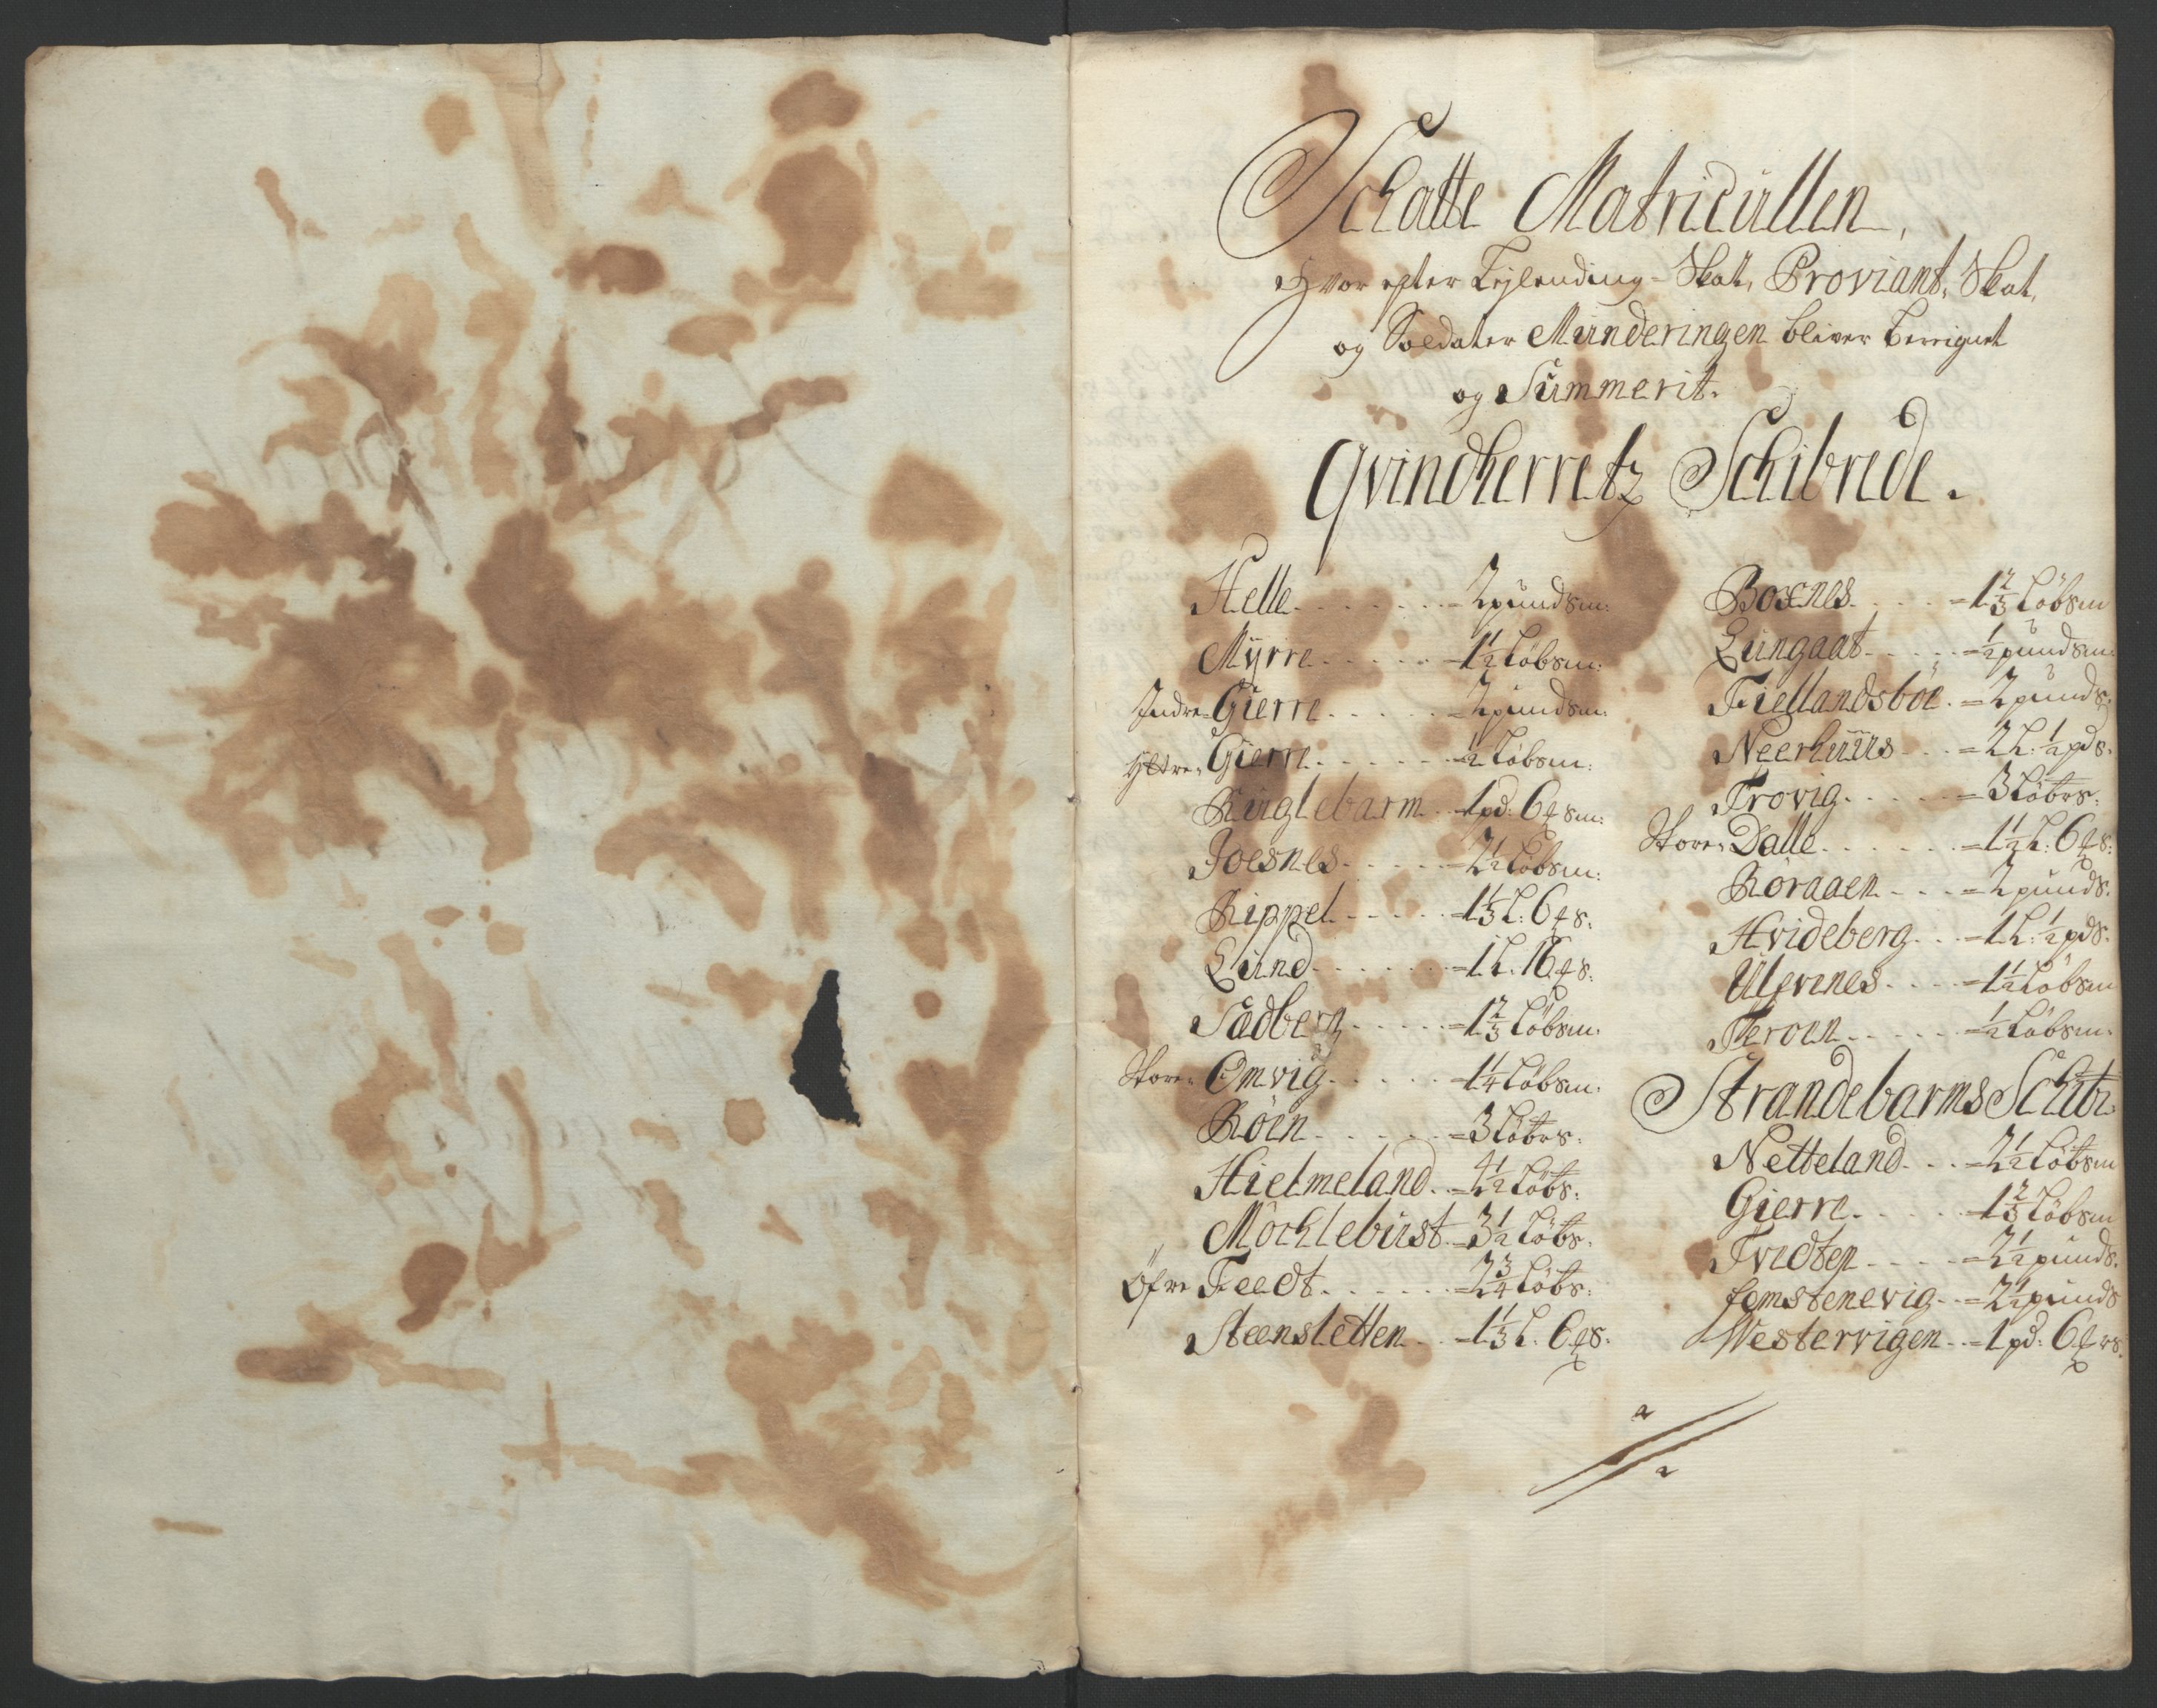 Schatte Matricullen,
Hvor efter Lejlending-Skat, Proviant, Skat,
og Soldater Munderingen bliver berrignet
og Summerit.
Qvindherretz Schibrede.
Helle - 2 pundsm:
Myrre - 1½ Löbsm:
Indre Gierre - 2 pundsm:
Ytre Gierre - ½ Löbsm:
Kuglebarm - 1 pd: 6 sm:
Joesnes - 2½ Löbsm:
Rippel - 1⅓ L: 6 s:
Lund - 1 L. 16 s:
Sædberg - 1⅔ Löbsm:
Store Omvig - 1¼ Löbsm:
Röen - 3 Löbrs:
Hielmeland - 4½ Löbs:
Möchlebust - 3½ Löbs:
Öfre Feedt - 2¾ Löbs:
Steensletten - 1⅓ L. 6 s:
Bosnes - 1⅔ Löbsm
Lungaat - ½ pundsm:
Fiellandsböe - 2 punds:
Neerhuus - 2 L: ½ pds:
Trovig - 3 Löbrs:
Store Dalle - 1½ L: 6 s:
Röraaen - 2 punds:
Hvideberg - 1 L: ½ pds:
Ulevines - 1½ Löbsm
Teroen - ½ Löbsm:
Strandebarms Schibr:
Netteland - 2½ Löbsm
Gierre - 1⅔ Löbsm
Tvedten - 2½ punds:
femstenevig - 2½ punds
Westervigen - 1 pd: 6 rs: